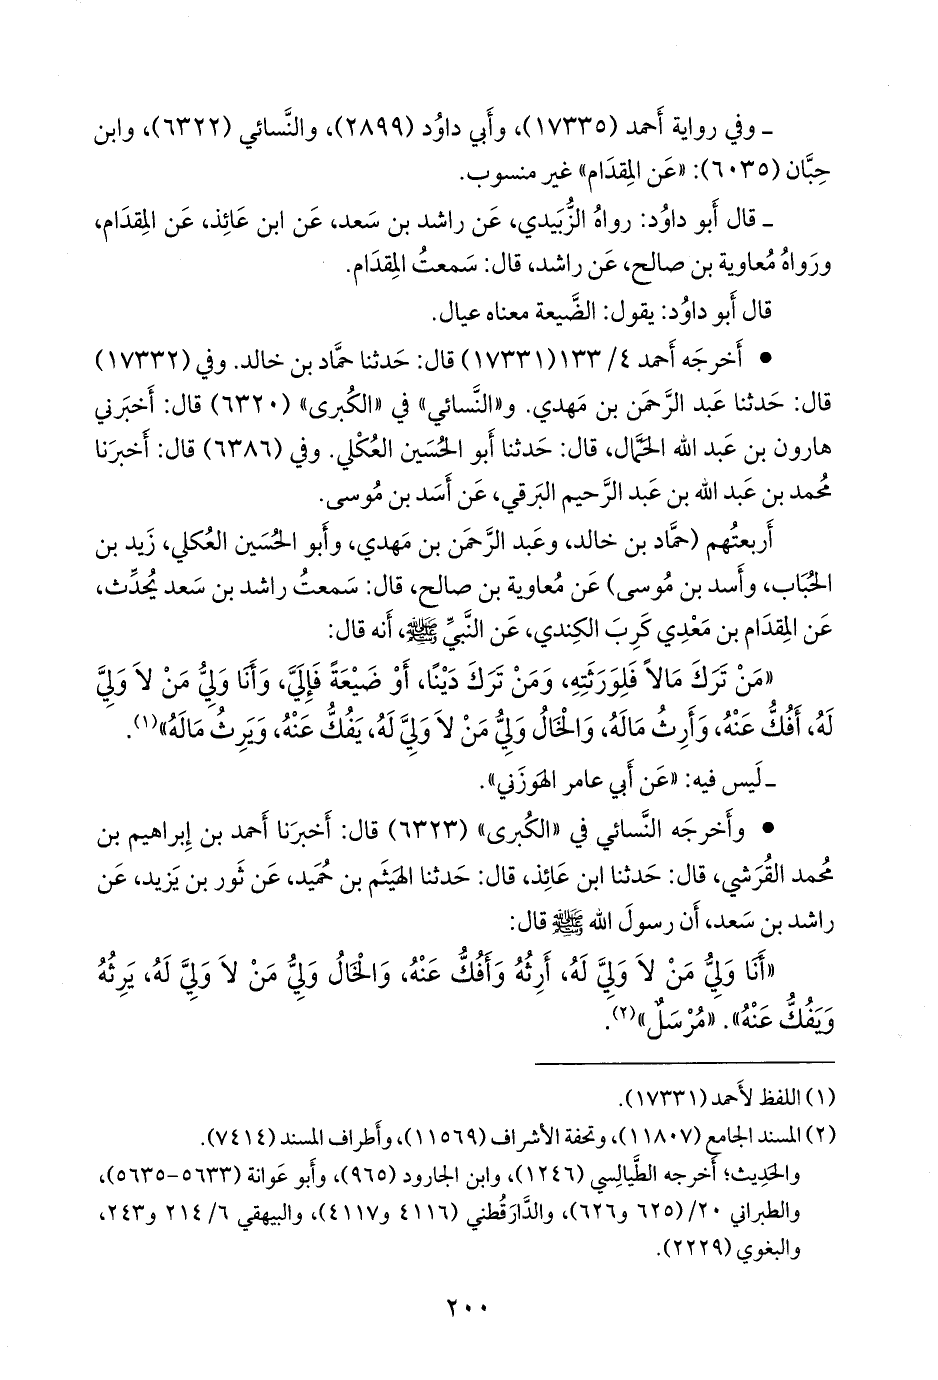 ـ وفي رواية أَحمد (١٧٣٣٥)، وأَبي داوُد (٢٨٩٩)، والنَّسائي (٦٣٢٢)، وابن
حِبَّان (٦٠٣٥): «عَن المِقدَام» غير منسوب.
ـ قال أَبو داوُد: رواهُ الزُّبَيدي، عَن راشد بن سَعد، عَن ابن عَائِذ، عَن المِقدَام،
ورَواهُ مُعاوية بن صالح، عَن راشد، قال: سَمعتُ المِقدَام.
قال أَبو داوُد: يقول: الضَّيعة معناه عيال.
• أَخرجَه أَحمد ٤/ ١٣٣ (١٧٣٣١) قال: حَدثنا حمَّاد بن خالد. وفي (١٧٣٣٢)
قال: حَدثنا عَبد الرَّحمَن بن مَهدي. و«النَّسائي» في «الكُبرى» (٦٣٢٠) قال: أَخبَرني
هارون بن عَبد الله الحَمَّال، قال: حَدثنا أَبو الحُسَين العُكْلي. وفي (٦٣٨٦) قال: أَخبرَنا
مُحمد بن عَبد الله بن عَبد الرَّحيم البَرقي، عَن أَسَد بن مُوسى.
أَربعتُهم (حمَّاد بن خالد، وعَبد الرَّحمَن بن مَهدي، وأَبو الحُسَين العُكلي، زَيد بن
الحُبَاب، وأَسد بن مُوسى) عَن مُعاوية بن صالح، قال: سَمعتُ راشد بن سَعد يُحدِّث،
عَن المِقدَام بن مَعْدِي كَرِبَ الكِندي، عَن النَّبيِّ ﷺ، أَنه قال:
«مَنْ تَرَكَ مَالاً فَلِوَرَثَتِهِ، وَمَنْ تَرَكَ دَيْنًا، أَوْ ضَيْعَةً فَإِلَيَّ، وَأَنَا وَلِيُّ مَنْ لاَ وَلِيَّ
لَهُ، أَفُكُّ عَنْهُ، وَأَرِثُ مَالَهُ، وَالْخَالُ وَلِيُّ مَنْ لاَ وَلِيَّ لَهُ، يَفُكُّ عَنْهُ، وَيَرِثُ مَالَهُ»(١).
ـ لَيس فيه: «عَن أَبي عامر الهَوزَني».
• وأَخرجَه النَّسائي في «الكُبرى» (٦٣٢٣) قال: أَخبرَنا أَحمد بن إِبراهيم بن
مُحمد القُرَشي، قال: حَدثنا ابن عَائِذ، قال: حَدثنا الهَيثَم بن حُمَيد، عَن ثَور بن يَزيد، عَن
راشد بن سَعد، أَن رسولَ الله ﷺ قال:
«أَنَا وَلِيُّ مَنْ لاَ وَلِيَّ لَهُ، أَرِثُهُ وَأَفُكُّ عَنْهُ، وَالْخَالُ وَلِيُّ مَنْ لاَ وَلِيَّ لَهُ، يَرِثُهُ
وَيَفُكُّ عَنْهُ». «مُرْسَلٌ»(٢).
(١) اللفظ لأَحمد (١٧٣٣١).
(٢) المسند الجامع (١١٨٠٧)، وتحفة الأشراف (١١٥٦٩)، وأطراف المسند (٧٤١٤).
والحَدِيث؛ أخرجه الطَّيالِسي (١٢٤٦)، وابن الجارود (٩٦٥)، وأبو عَوانة (٥٦٣٣-٥٦٣٥)،
والطبراني ٢٠/ (٦٢٥ و٦٢٦)، والدَّارَقُطني (٤١١٦ و٤١١٧)، والبيهقي ٦/ ٢١٤ و٢٤٣،
والبغوي (٢٢٢٩).
٢٠٠